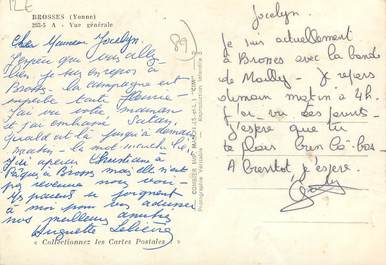 12€
BROSSES (Yonne)
262-5 A - Vue générale
89
Cher Monsieur Jocelyn.
J'espère que vous allez
bien. Je suis en repos à
Bross. La campagne est
superbe toute fleurie
J'ai vu votre maman
et j'ai embrassé Satan.
Gérald est là jusqu'à demain
matin - la mob marche bien
J'ai aperçu Christiane à
Pâques à Bross mais elle n'est
pas revenue nous voir -
Mes parents se joignent
à moi pour vous adresser
nos meilleures amitiés
Huguette Lelièvre
« Collectionnez les Cartes Postales »
COMBIER IMP. MACON (S.-et-L.) "CIM"
Photographie Véritable - Reproduction Interdite
Jocelyn.
Je suis actuellement
à Brosses avec la bande
de Mailly - Je repars
demain matin à 4h.
J'ai vu tes parents
J'espère que tu
te plais bien là-bas-
A bientôt j'espère.